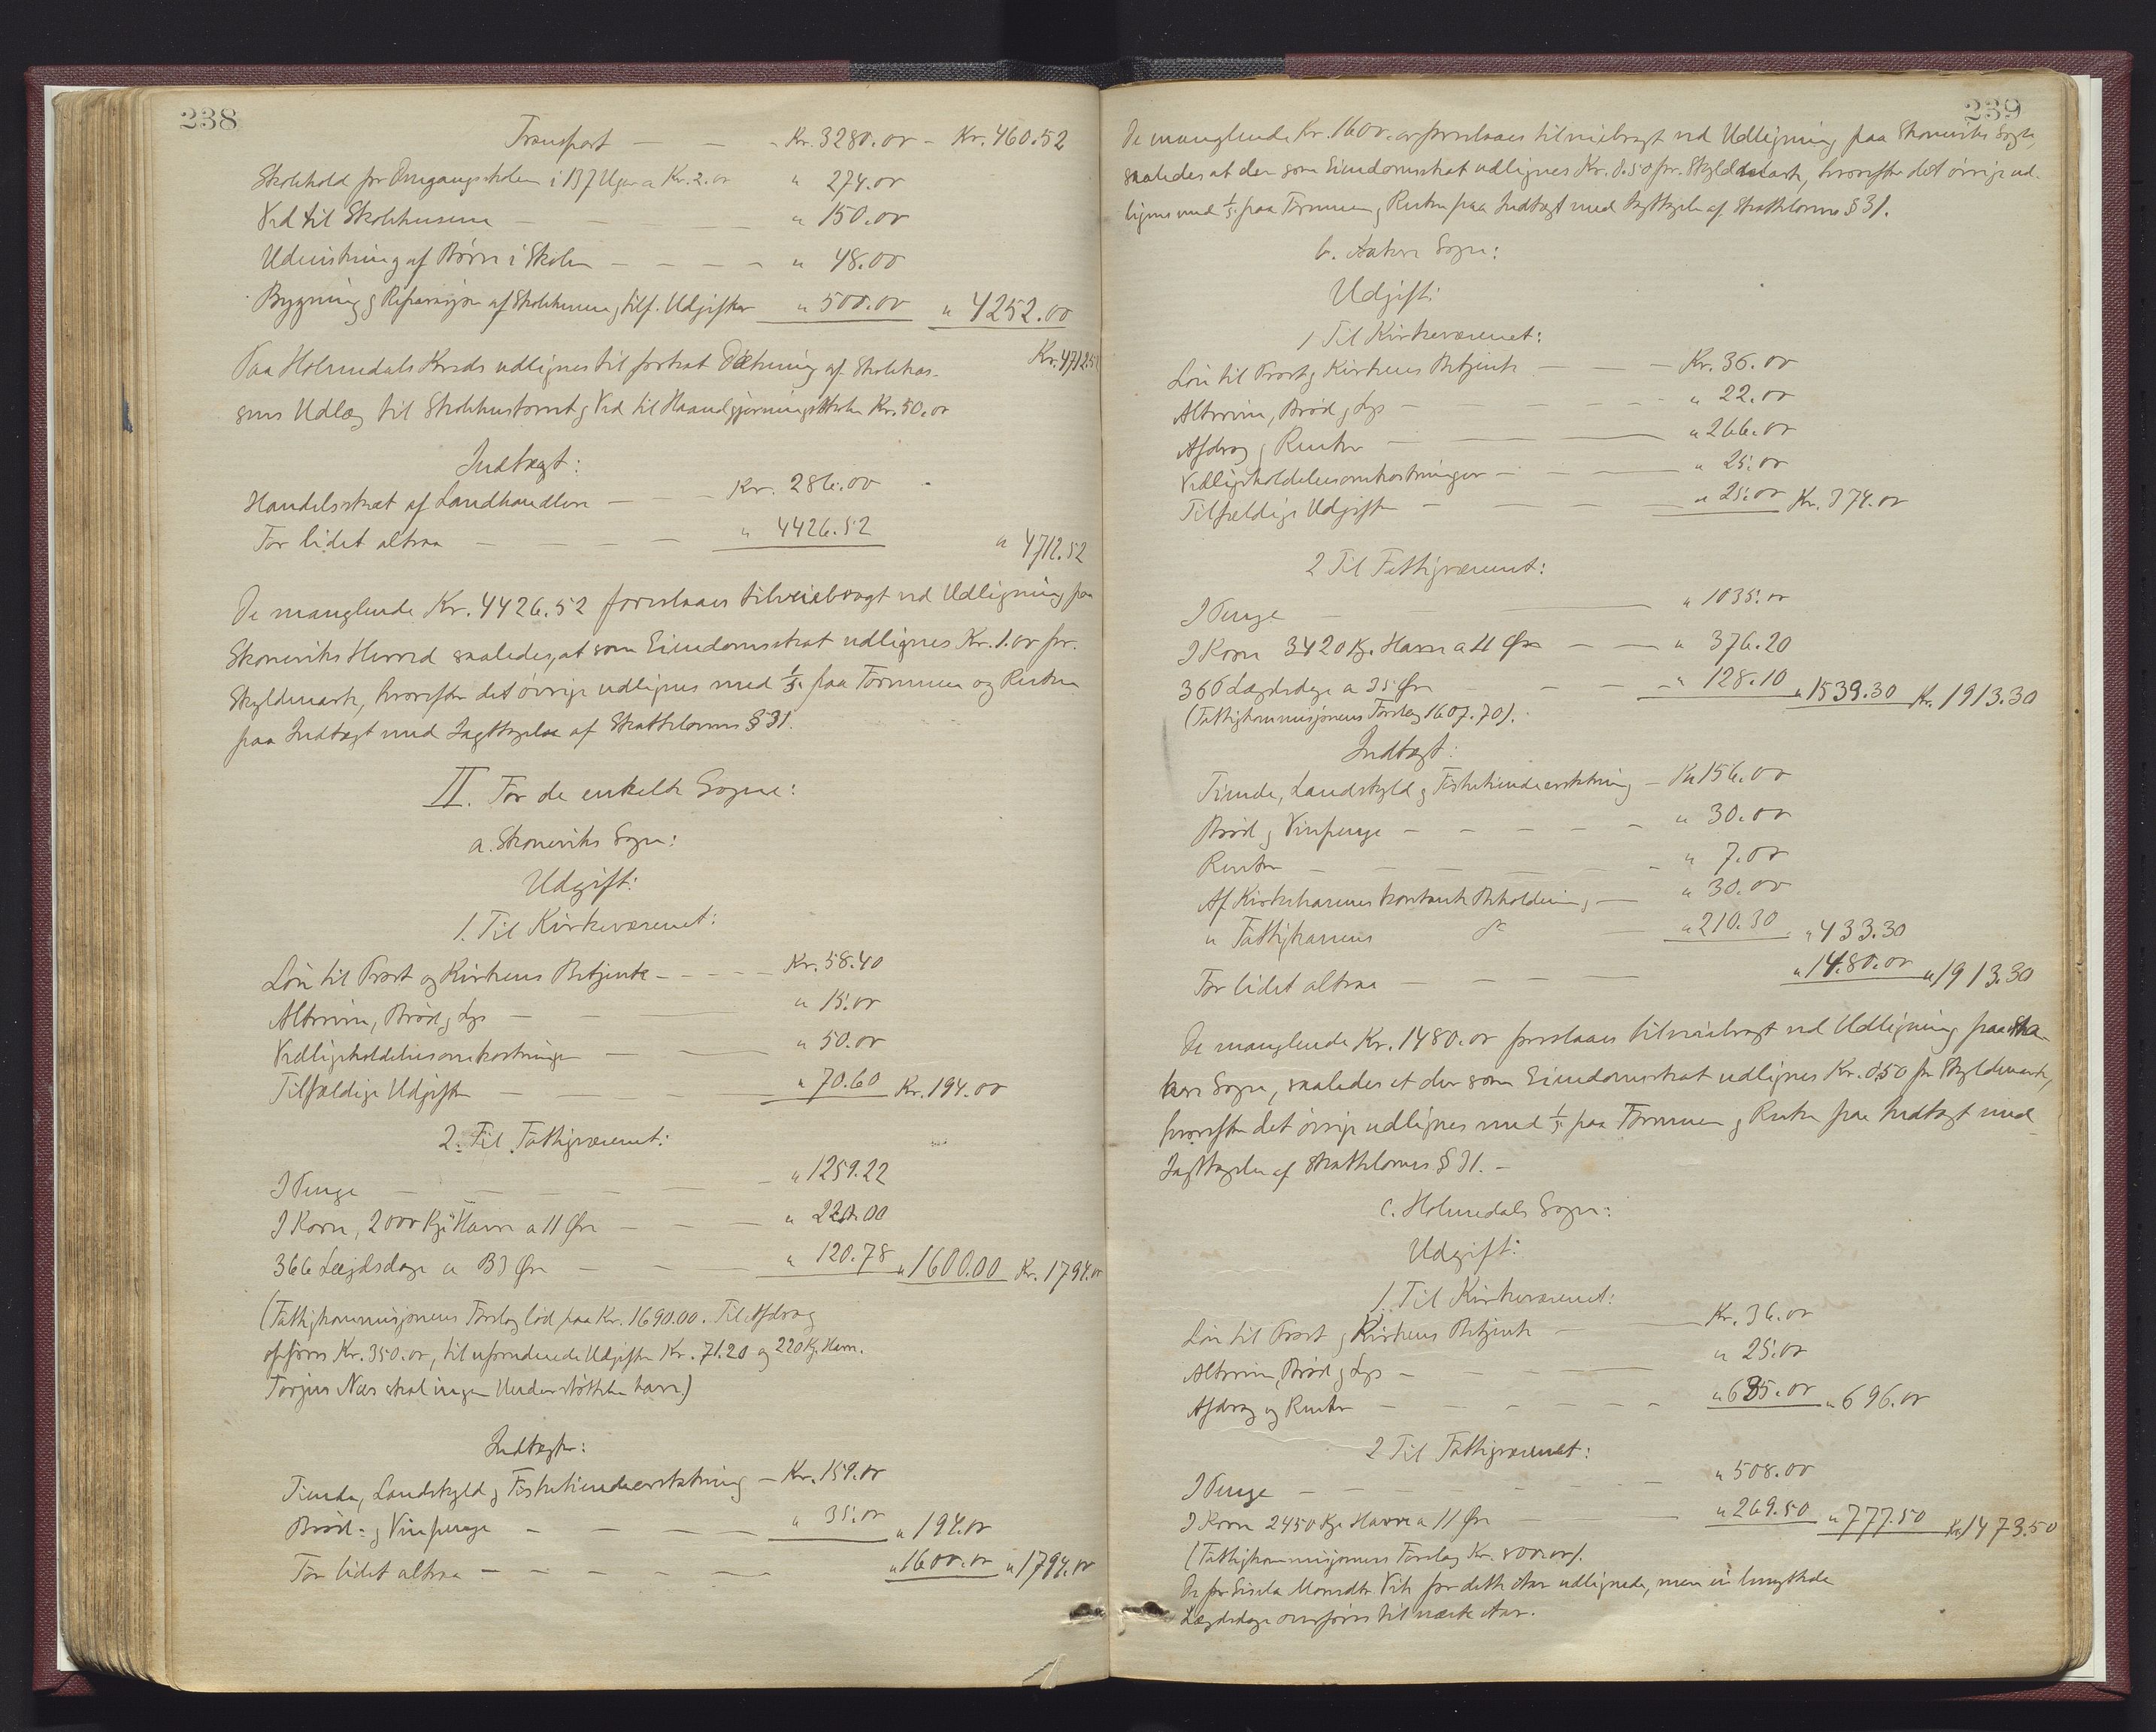 238
Transport — — - Kr. 3280.00 - Kr. 460.52
Skolehold for Omgangsskolen i 137 Uger a Kr. 2.00 " 274.00
Ved til Skolehusene — — — " 150.00
Udvisning af Børn i Skolen — — — — " 48.00
Bygning og Reparasjon af Skolehusene, tilf. Udgifter " 500.00 " 4252.00
Kr. 4712.52
Paa Holmedals Kreds udlignes til fortsat Dækning af Skolekas-
sens Udlæg til Skolehustomt og Ved til Haandgjerningsskolen Kr. 50.00
Indtægt:
Handelsskat af Landhandlere — — Kr. 286.00
For lidet altsaa — — — — " 4426.52 " 4712.52
De manglende Kr. 4426.52 foreslaaes tilveiebragt ved Udligning paa
Skoneviks Herred saaledes, at som Eiendomsskat udlignes Kr. 1.00 pr.
Skyldmark, hvorefter det øvrige udlignes med 1/5 paa Formuen og Resten
paa Indtægt med Iagttagelse af Skattelovens § 31.
II. For de enkelte Sogne:
a. Skoneviks Sogn:
Udgift:
1. Til Kirkevæsenet:
Løn til Prost og Kirkens Betjente - - - - Kr. 58.40
Altervin, Brød og Lys — — — " 15.00
Vedligeholdelsesomkostninger — — " 50.00
Tilfældige Udgifter — — — " 70.60 Kr. 194.00
2. Til Fattigvæsenet:
I Penge — — — — — " 1259.22
I Korn, 2000 Kg. Havre a 11 Øre — — — " 220.00
366 Lægdsdage a 33 Øre — — — " 120.78 " 1600.00 Kr. 1794.00
(Fattigkommisjonens Forslag lød paa Kr. 1690.00. Til Afdrag
opføres Kr. 350.00, til uforudseede Udgifter Kr. 71.20 og 220 Kg. Havre.
Torjus Næs skal ingen Understøttelse have.)
Indtægter:
Tiende, Landskyld og Fisketiendeerstatning — Kr. 159.00
Brød- og Vinpenge - — — — " 35.00 " 194.00
For lidet altsaa — - - - — — " 1600.00 " 1794.00
239
De manglende Kr. 1600.00 foreslaaes tilveiebragt ved Udligning paa Skoneviks Sogn,
saaledes at der som Eiendomsskat udlignes Kr. 0.50 pr. Skyldmark, hvorefter det øvrige ud-
lignes med 1/5 paa Formuen og Resten paa Indtægt med Iagttagelse af Skattelovens § 31.
b. Aakre Sogn:
Udgift:
1 Til Kirkevæsenet:
Løn til Prost og Kirkens Betjente — — — Kr. 36.00
Altervin, Brød og Lys — — — " 22.00
Afdrag og Renter — — — " 266.00
Vedligeholdelsesomkostninger — — — " 25.00
Tilfældige Udgifter — — — " 25.00 Kr. 374.00
2 Til Fattigvæsenet:
I Penge — — " 1035.00
I Korn 3420 Kg. Havre a 11 Øre — — " 376.20
366 Lægdsdage a 35 Øre — — — " 128.10 " 1539.30 Kr. 1913.30
(Fattigkommisjonens Forslag 1607.70).
Indtægt:
Tiende, Landskyld og Fisketiendeerstatning — Kr. 156.00
Brød og Vinpenge — — — — — " 30.00
Renter — — — — — " 7.00
Af Kirkekassens kontante Beholdning — " 30.00
" Fattigkassens do — " 210.30 " 433.30
For lidet altsaa — — — — " 1480.00 " 1913.30
De manglende Kr. 1480.00 foreslaaes tilveiebragt ved Udligning paa Aa-
kre Sogn, saaledes at der som Eiendomsskat udlignes Kr. 0,50 pr Skyldmark,
hvorefter det øvrige udlignes med 1/5 paa Formuen og Resten paa Indtægt med
Iagttagelse af Skattelovens § 31. -
c. Holmedals Sogn:
Udgift:
1. Til Kirkevæsenet:
Løn til Prost og Kirkens Betjente — — Kr. 36.00
Altervin, Brød og Lys — — — " 25.00
Afdrag og Renter — — — — — " 635.00 " 696.00
2 Til Fattigvæsenet:
I Penge — — — — — " 508.00
I Korn 2450 Kg. Havre a 11 Øre — — " 269.50 " 777.50 Kr. 1473.50
(Fattigkommisjonens Forslag Kr. 800.00).
De for Sisela Monsdtr. Vik for dette Aar udlignede, men ei benyttede
Lægdsdage overføres til næste Aar.